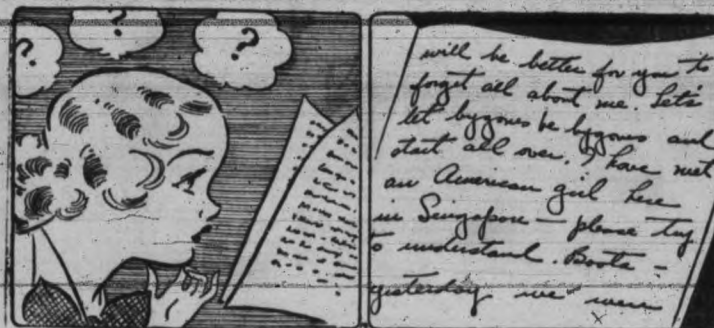 ?
?
?
will be better for you to
forget all about me. Let's
let bygones be bygones and
start all over. I have met
an American girl here
in Singapore — please try
to understand. Boots —
yesterday we were